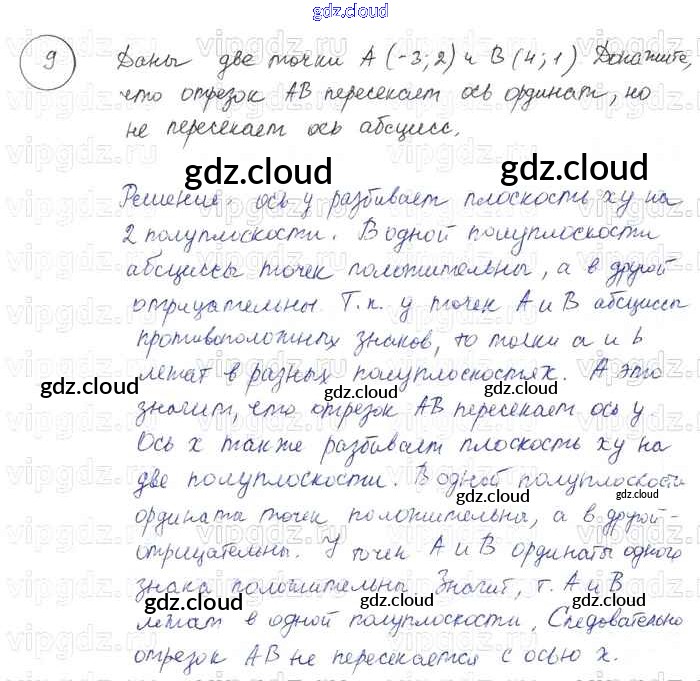 gdz.cloud
9 Даны две точки А (-3; 2) и В (4; 1) Докажите,
что отрезок АВ пересекает ось ординат, но
не пересекает ось абсцисс.
gdz.cloud gdz.cloud
Решение: ось у разбивает плоскость ху на
2 полуплоскости. В одной полуплоскости
абсциссы точек положительны, а в другой
отрицательны. Т.к. у точек А и В абсциссы
противоположных знаков, то точки а и b
лежат в разных полуплоскостях. А это
gdz.cloud gdz.cloud gdz.cloud
значит, что отрезок АВ пересекает ось у.
Ось х также разбивает плоскость ху на
две полуплоскости. В одной полуплоскости
gdz.cloud gdz.cloud
ордината точек положительна, а в другой-
отрицательны. У точек А и В ординаты одного
знака положительны Значит, т. А и В
gdz.cloud gdz.cloud gdz.cloud
лежат в одной полуплоскости, Следовательно
отрезок АВ не пересекается с осью х.